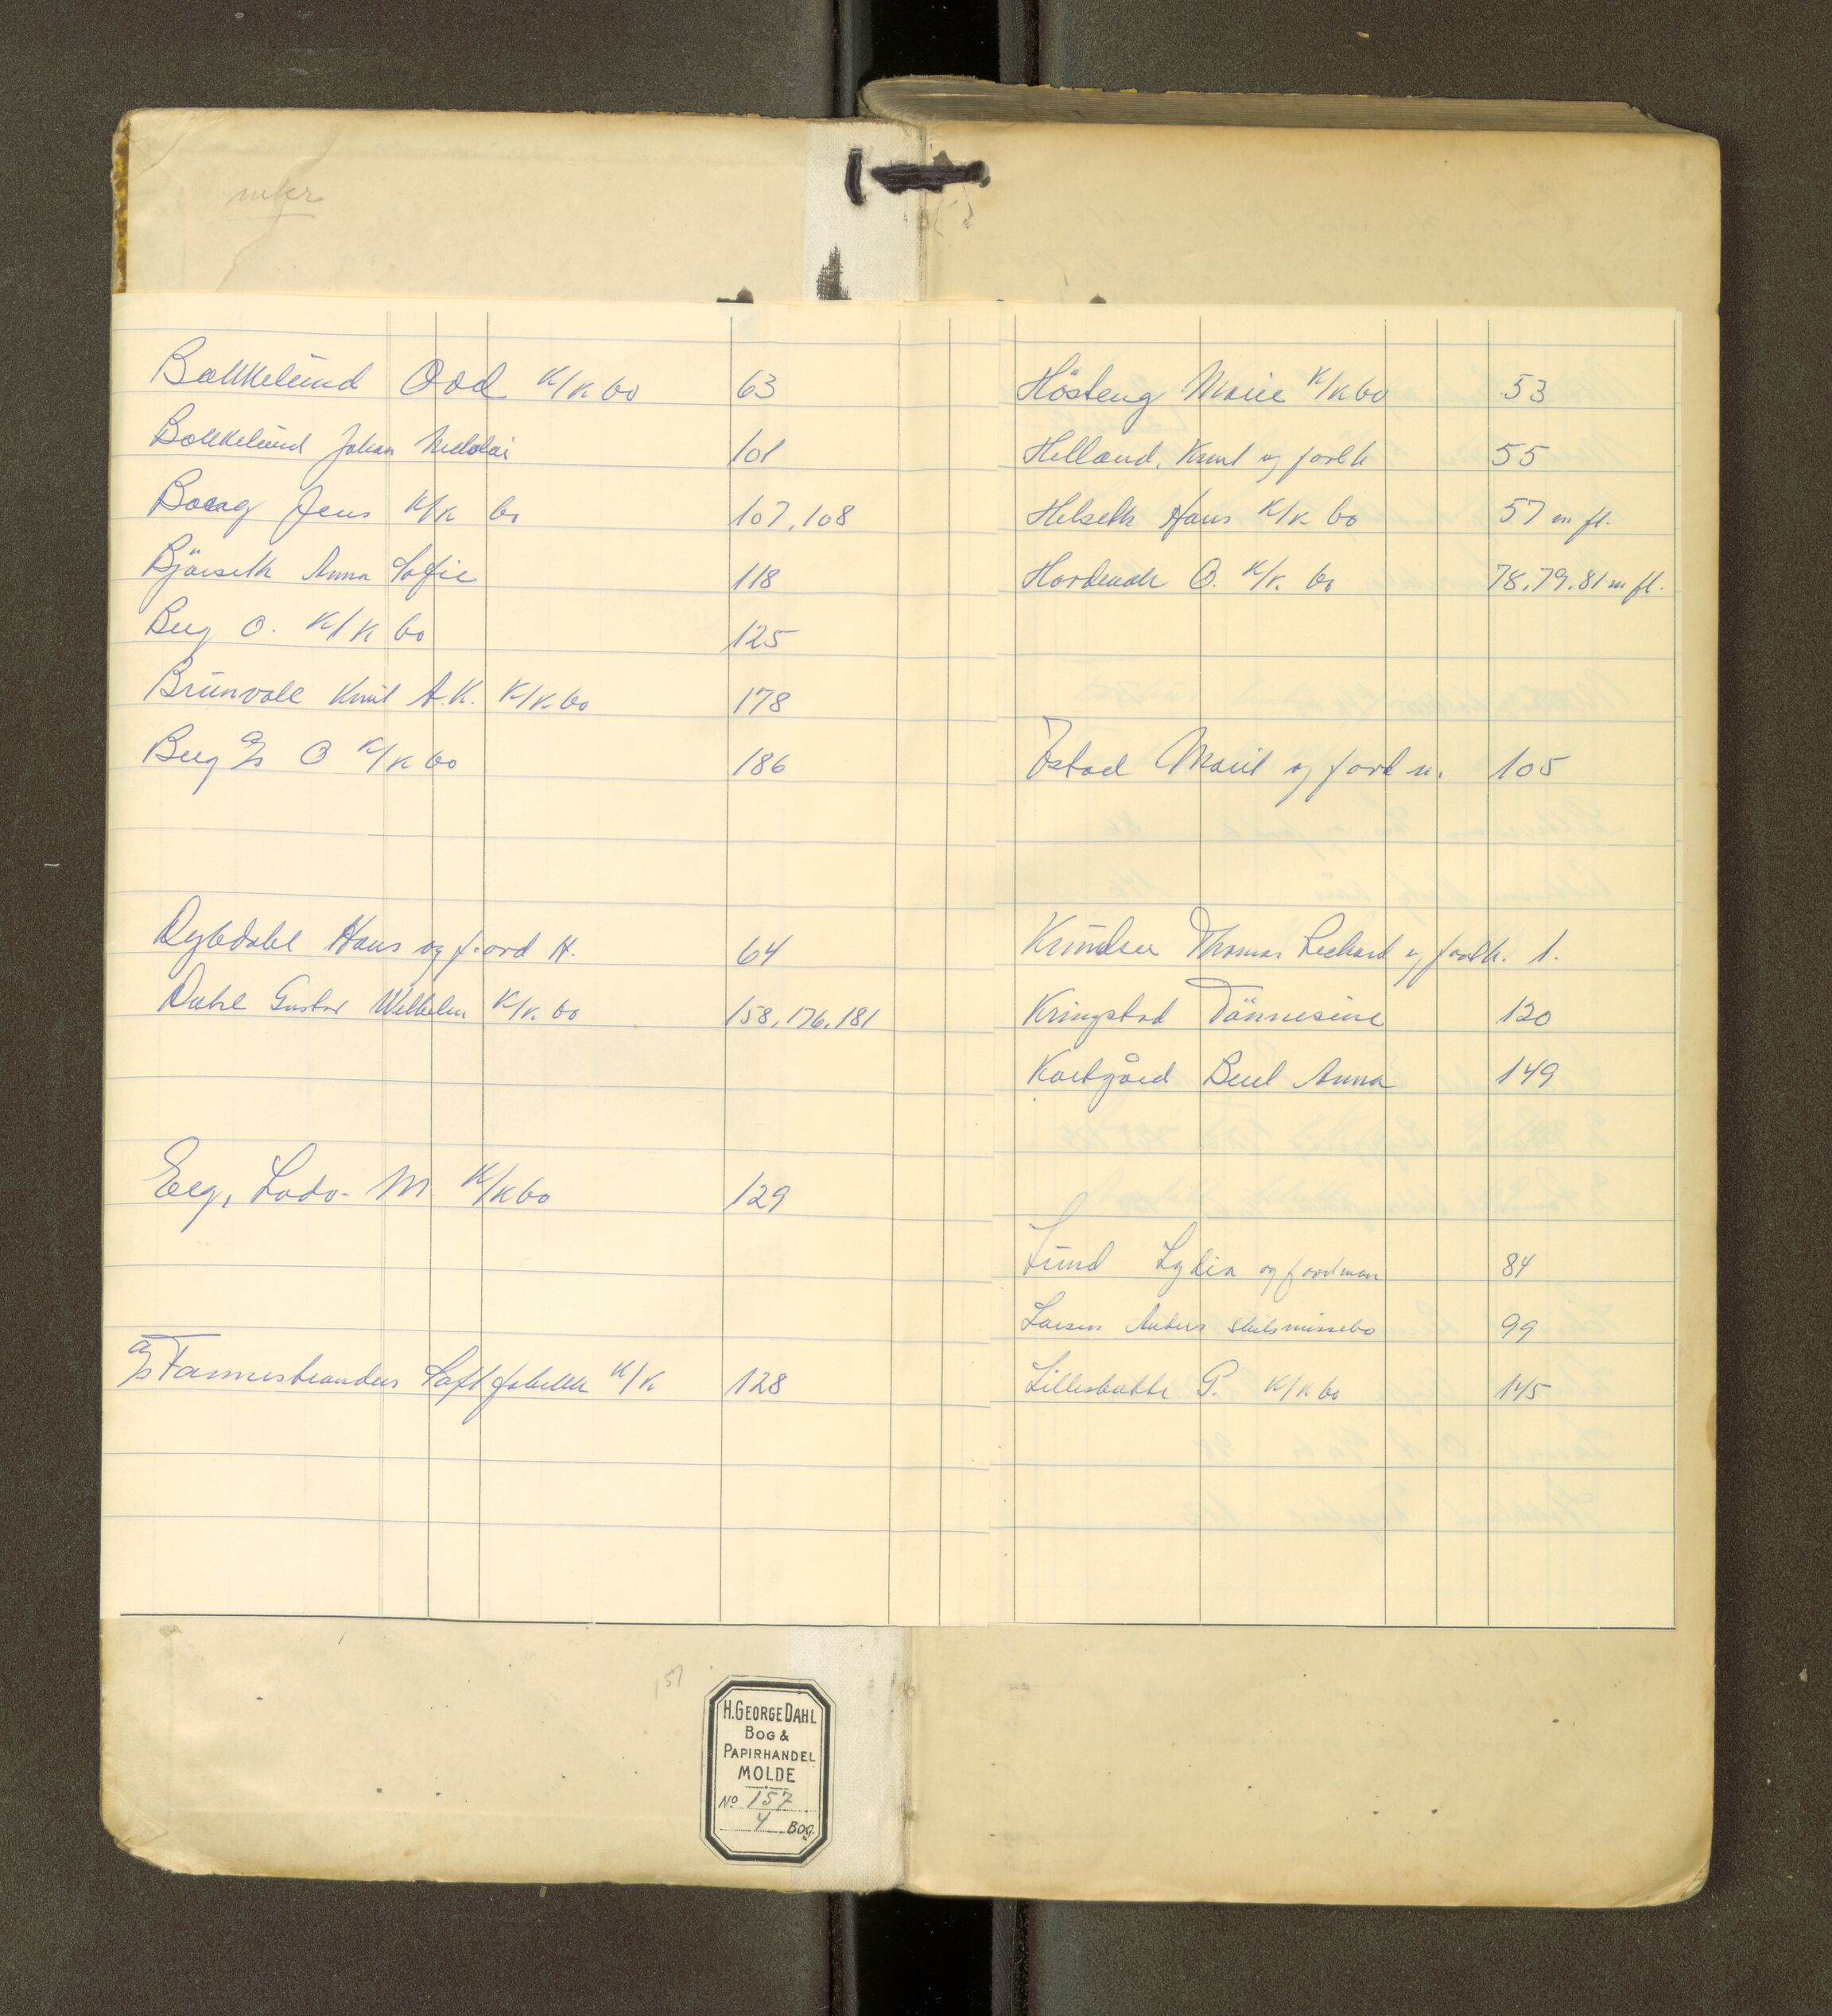 Bakkelund Odd K/K bo 63
Bakkelund Johan Nikolai 101
Borag Jens K/K bo 107, 108
Bjørseth Anna Sofie 118
Berg O. K/K bo 125
Brunvoll Knut A.K. K/K bo 178
Berg a/s O K/K bo 186
Dybdahl Hans og ford H. 64
Dahl Gustav Wilhelm K/K bo 158, 176, 181
Eeg, Lodv. M. K/K bo 129
a/s Fannestrandens Saftfabrikk K/K 128
Hösteng Marie K/K bo 53
Helland, Knut og ford h 55
Helseth Hans K/K bo 57 m fl.
Hardende O. K/K bo 78, 79, 81 m fl.
Istad Marit og ford m. 105
Knudsen Thomas Richard og ford h. 1.
Kringstad Tönnesine 120
Kortgård Berit Anna 149
Lund Lydia og ford man 84
Larsen Anders skilsmissebo 99
Lillebakk P. K/K bo 145
H. GEORGE DAHL
BOG &
PAPIRHANDEL
MOLDE
No 157
4 BOG.